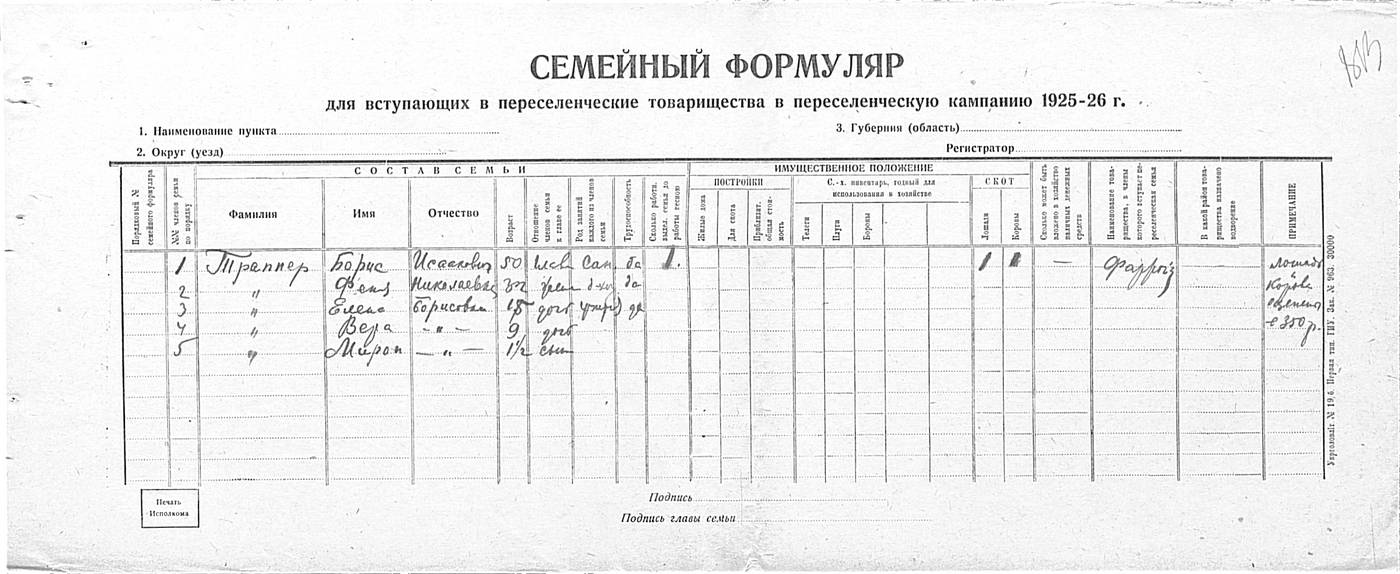 813
СЕМЕЙНЫЙ ФОРМУЛЯР
для вступающих в переселенческие товарищества в переселенческую кампанию 1925-26 г.
1. Наименование пункта
3. Губерния (область)
2. Округ (уезд)
Регистратор
СОСТАВ СЕМЬИ
ИМУЩЕСТВЕННОЕ ПОЛОЖЕНИЕ
ПОСТРОЙКИ
С.-х. инвентарь, годный для использования в хозяйстве
СКОТ
Порядковый № семейного формуляра
№№ членов семьи по порядку
Фамилия
Имя
Отчество
Возраст
Отношение членов семьи к главе ее
Род занятий каждого из членов семьи
Трудоспособность
Сколько работн. выдел. семья до работы весною
Жилые дома
Для скота
Приблизит. общая стоимость
Телеги
Плуги
Бороны
Лошади
Коровы
Сколько может быть вложено в хозяйство наличных денежных средств
Наименование товарищества, в члены которого вступает переселенческая семья
В какой район товарищества назначено водворение
ПРИМЕЧАНИЕ
1 Траппер Борис Исаакович 50 1. 1 1 —
2 " Николаевна да
3 " Елена Борисовна дочь да
4 " Вера — " — 9 дочь
5 " Мирон — " — 1½ сын
лошадь
корова
оценены
в 350 р.
Печать
Исполкома
Подпись
Подпись главы семьи
Укрголовліт № 19.6. Первая тип. ГИУ. Зак. № 963. 30000